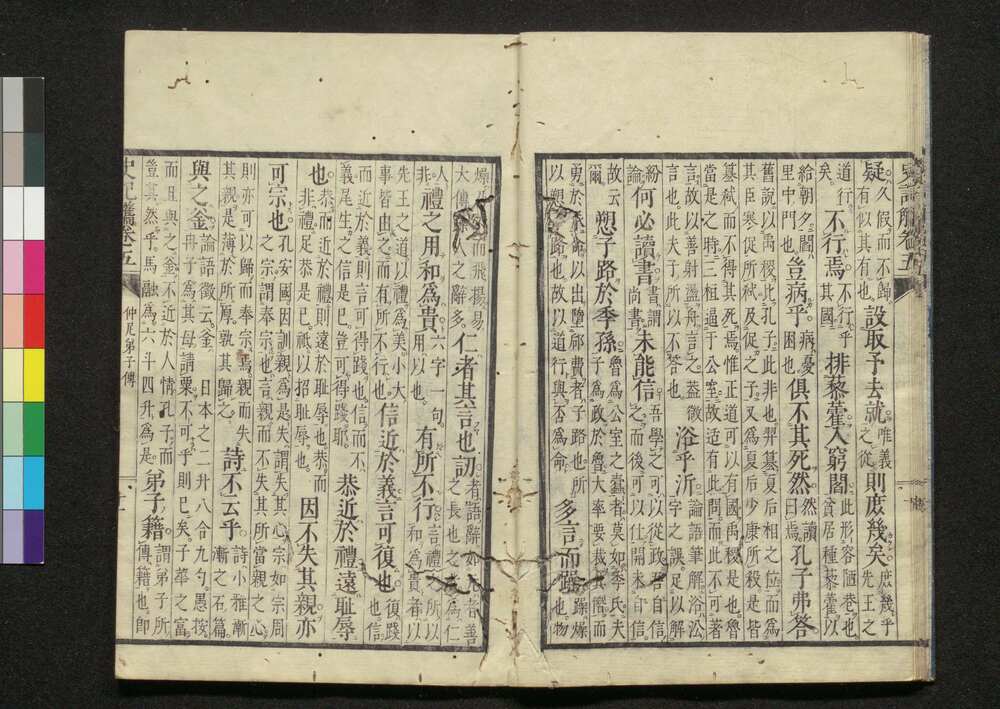 疑久假而不歸
有似其有也
設取予去就
唯義
之從
則庶幾矣
庶幾乎
先王之
道行
矣
不行焉
不行乎
其國
排藜藿入窮閻
此形容陋巷也
貧居種藜藿以
給朝夕閻
里中門也
豈病乎
病憂
困也
俱不其死然
然讀
曰焉
孔子弗答
舊說以禹稷比孔子此非也羿奡夏后相之位而為
其臣寒促所弒及促之子又為夏后少康所殺是皆
弒而不得其死焉惟正道可以有國禹稷是也魯
當是之時三桓過于公室故适有此問而此不可著
言故以善射盪舟言之蓋微
言也此夫子所以不答也
浴乎沂
論語筆解浴沿
字之誤足以解
紛
論
何必讀書
書謂
尚書
未能信
吾學之可以從政若自信
之而後可以仕開未自信
故云
爾
愬子路於季孫
魯為公室之蠹者莫如季氏夫
子為政於魯大率要裁其僭而
勇於承命以出墮郈費者子路也所
以愬子路也故以道行與否為命
多言而躁
躁燥
也物
燥而飛揚易
大傳人之辭多
仁者其言也訒
者語辭如者善
之長也之為仁
人
非
禮之用和為貴
六字一句
用以也
有所不行
言禮所以
和為貴者以
先王之道以禮為美小大
事皆由之而有所不行也
信近於義言可復也
復踐
也信
而近於義則言可得踐也信而不
義尾生之信是已豈可得踐耶
恭近於禮遠耻辱
也
恭而近於禮則遠於耻辱也恭而
非禮足恭是已祇以招耻辱也
因不失其親亦
可宗也
孔安國因訓親為是失謂失其心宗如宗周
之宗謂奉宗也言親而不失其所當親之心
則亦可以歸而奉宗焉親而失
其親是薄於所厚孰其歸之
詩不云乎
詩小雅漸
漸之石篇
與之釜
論語徵云釜日本之二升八合九勺愚按
冉子為其母請粟不可乎則已矣子華之富
而且與之釜不近於人情孔子而
豈其然乎馬融為六斗四升為是
弟子籍
謂弟子所
傳籍也即
史記觿卷五
仲尼弟子傳